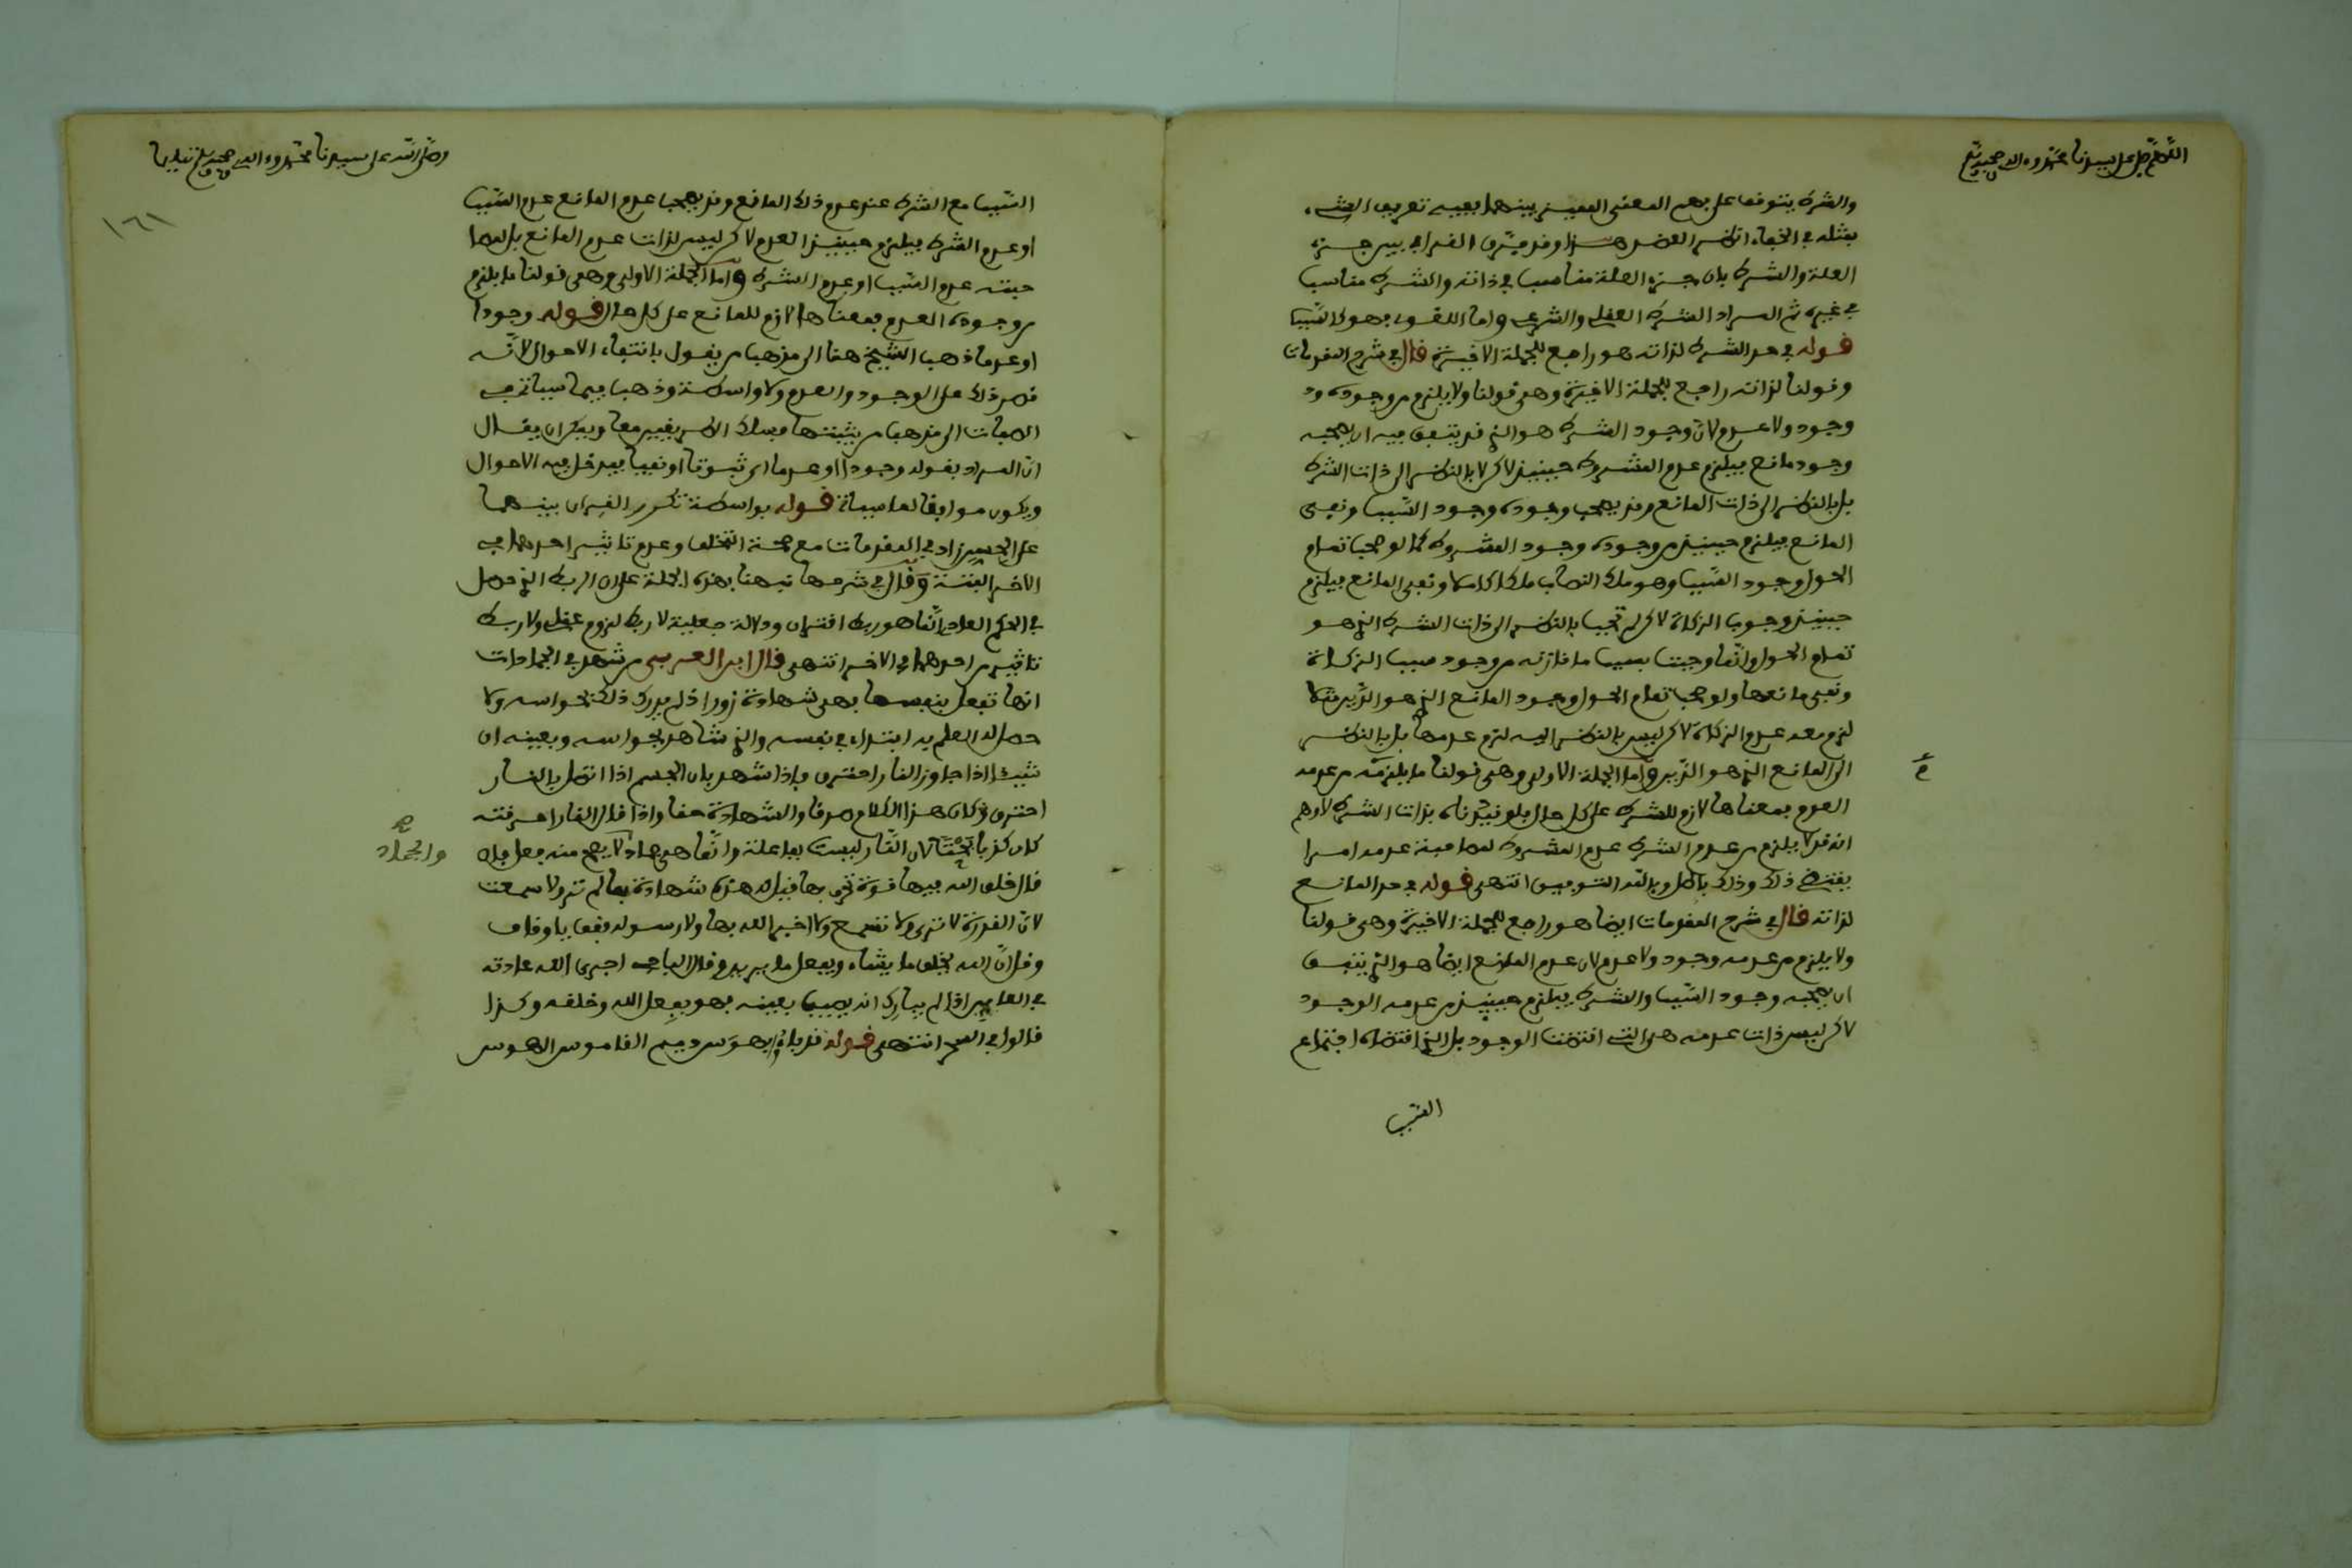 اللهم صل على سيدنا محمد وءاله وصحبه وسلم
والشرط يتوقف على بعض المعنى المميز بينهما ففيه تعريف الشيء
بمثله في الخفاء انظر العضد هذا وقد ميز القرافي بين جزء
العلة والشرط بان جزء العلة مناسب في ذاته والشرط مناسب
في غيره ثم المراد الشرط العقلي والشرعي واما اللغوي فهو كالسبب
قوله في حد الشرط لذاته هو راجع للجملة الاخيرة قال في شرح المقدمات
وقولنا لذاته راجع للجملة الاخيرة وهي قولنا ولا يلزم من وجوده
وجود ولا عدم لان وجود الشرط هو الذي قد يتفق فيه ان يصحبه
وجود مانع فيلزم عدم المشروط حينئذ لاكن لا بالنظر الى ذات الشرط
بل بالنظر الى ذات المانع وقد يصحب وجوده وجود السبب ونفي
المانع فيلزم حينئذ من وجوده وجود المشروط كما لو صحب تمام
الحول وجود السبب وهو ملك النصاب ملكا كاملا ونفي المانع فيلزم
حينئذ وجوب الزكاة لاكن لم تجب بالنظر الى ذات الشرط الذي هو
تمام الحول وانما وجبت بسبب ما قارنه من وجود سبب الزكاة
ونفي مانعها ولو صحب تمام الحول وجود المانع الذي هو الدين مثلا
لزم معه عدم الزكاة لاكن ليس بالنظر اليه لزم عدمها بل بالنظر
الى المانع الذي هو الدين واما الجملة الاولى وهي قولنا ما يلزم من عدمه
العدم بمعناها لازم للشرط على كل حال فلو قيدناه بذات الشرط لاوهم
انه قد لا يلزم من عدم الشرط عدم المشروط لمصاحبة عدمه امرا
يقتضي ذلك وذلك باطل وبالله التوفيق انتهى قوله في حد المانع
لذاته قال في شرح المقدمات ايضا هو راجع للجملة الاخيرة وهي قولنا
ولا يلزم من عدمه وجود ولا عدم لان عدم المانع ايضا هو الذي يتفق
ان يصحبه وجود السبب والشرط فيلزم حينئذ من عدمه الوجود
لاكن ليس ذات عدمه هي التي اقتضت الوجود بل الذي اقتضاه اجتماع
السبب
وصلى الله على سيدنا محمد وءاله وصحبه وسلم تسليما
١٦١
السبب مع الشرط عند عدم ذلك المانع وقد يصحب عدم المانع عدم السبب
او عدم الشرط فيلزم حينئذ العدم لاكن ليس لذات عدم المانع بل لمصا
حبته عدم السبب او عدم الشرط واما الجملة الاولى وهي قولنا ما يلزم
من وجوده العدم بمعناها لازم للمانع على كل حال قوله وجودا
او عدما ذهب الشيخ هنا الى مذهب من يقول بانتفاء الاحوال لانه
قصر ذلك على الوجود والعدم ولا واسطة وذهب فيما سياتي في
الصفات الى مذهب من يثبتها فسلك الامر بغيير معا ويمكن ان يقال
ان المراد بقوله وجودا او عدما اي ثبوتا او نفيا فيدخل فيه الاحوال
ويكون موافقا لما سياتي قوله بواسطة تكرر القران بينهما
على الحس زاد في المقدمات مع صحة التخلف وعدم تاثير احدهما في
الاخر البتة وقال في شرحها نبهنا بهذه الجملة على ان الربط الذي حصل
في الحكم العادي انما هو ربط اقتران ودلالة جعلية لا ربط لزوم عقلي ولا ربط
تاثير من احدهما في الاخر انتهى قال ابن العربي من شهد في الجمادات
انها تفعل بنفسها فهي شهادة زور اذ لم يدرك ذلك بحواسه ولا
حصل له العلم به ابتداء في نفسه والذي شاهد بحواسه وبعينه ان
شيئا اذا جاوز النار احترق فاذا شهد بان الجسم اذا اتصل بالنار
احترق وكان هذا الكلام صدقا والشهادة حقا واذا قال النار احرقته
كان كذبا بحتا لان النار ليست بفاعلة وانما هي جماد لا يصح منه فعل فان
والجماد
قال خلق الله فيها قوة تحرق بها قيل له هذه شهادة بما لم تر ولا سمعت
لان القدرة لا ترى ولا تسمع ولا اخبر الله بها ولا رسوله فقف يا وقاف
وقل ان الله يخلق ما يشاء ويفعل ما يريد وقال الباجي اجرى الله عادته
في العاين اذا لم يبارك انه يصيب بعينه فهو بفعل الله وخلقه وكذا
قالوا في السحر انتهى قوله قد باء بهوس وفي القاموس الهوس